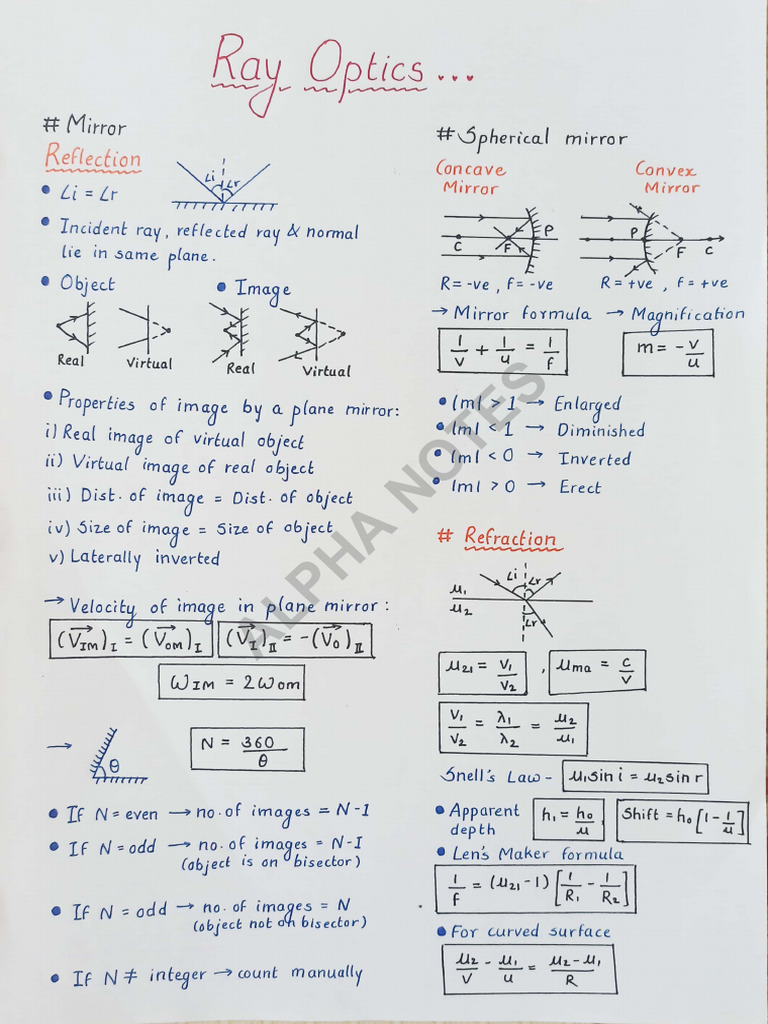 Ray Optics...
# Mirror
Reflection
∠i ∠r
• ∠i = ∠r
• Incident ray, reflected ray & normal
lie in same plane.
• Object • Image
Real Virtual Real Virtual
• Properties of image by a plane mirror:
i) Real image of virtual object
ii) Virtual image of real object
iii) Dist. of image = Dist. of object
iv) Size of image = Size of object
v) Laterally inverted
→ Velocity of image in plane mirror:
(V⃗IM)I = (V⃗OM)I (V⃗I)II = -(V⃗O)II
ωIM = 2ωOM
→ θ N = 360/θ
• If N = even → no. of images = N-1
• If N = odd → no. of images = N-1
(object is on bisector)
• If N = odd → no. of images = N
(object not on bisector)
• If N ≠ integer → count manually
# Spherical mirror
Concave Mirror
Convex Mirror
C F P
P F C
R = -ve, f = -ve R = +ve, f = +ve
→ Mirror formula → Magnification
1/v + 1/u = 1/f m = -v/u
• |m| > 1 → Enlarged
• |m| < 1 → Diminished
• |m| < 0 → Inverted
• |m| > 0 → Erect
# Refraction
∠i ∠r
μ1
μ2
∠r
μ21 = V1/V2 , μma = c/v
V1/V2 = λ1/λ2 = μ2/μ1
Snell's Law - μ1 sin i = μ2 sin r
• Apparent depth h1 = ho/μ Shift = ho[1 - 1/μ]
• Len's Maker formula
1/f = (μ21 - 1) [1/R1 - 1/R2]
• For curved surface
μ2/V - μ1/u = μ2 - μ1/R
ALPHA NOTES